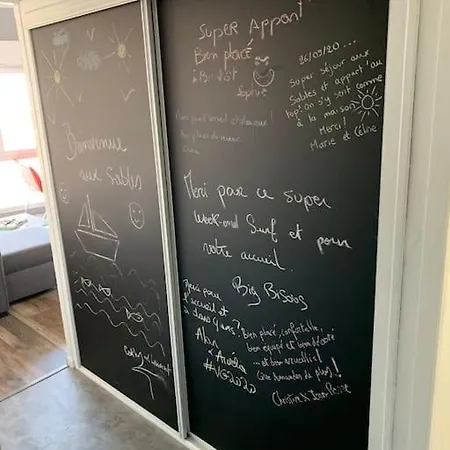 Bienvenue
aux Sables
Super Appart
Bien placé
à Bientôt
Sophie
26/09/20...
Super séjour aux
Sables et appart' au
top! on s'y sent comme
à la maison
Merci!
Marie et Céline
Merci pour ce super
week-end Surf et pour
votre accueil.
Big Bisous
Merci pour
l'accueil et
à dans 4 ans?
Alan
& 
#VG2020
bien placé, confortable,
bien équipé et bien décoré
... et bien accueillis!
Que demander de plus!
Christine & Jean Pierre